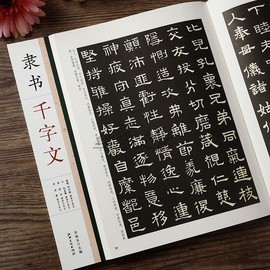 隶书
千字文
奉母儀諸姑
比兒孔懷兄弟同氣連枝
交友投分切磨箴規仁慈
隱惻造次弗離節義廉退
顛沛匪虧性靜情逸心動
神疲守真志滿逐物意移
堅持雅操好爵自縻都邑